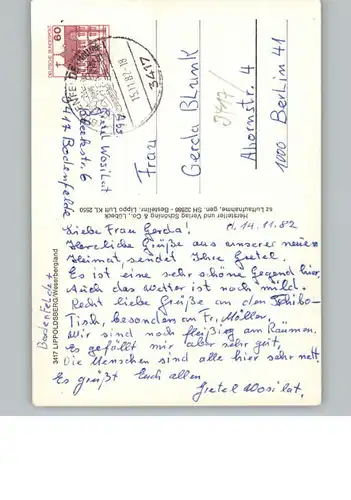 60
DEUTSCHE BUNDESPOST
15.11.82-18
3417
Abs.
Gretel Wosilat
Bleekstr. 6
3417 Bodenfelde
Frau
Gerda Blunk
Ahornstr. 4
1000 Berlin 41
3417/
sz Luftaufnahme, gen. SH 32988 - Bestellnr. Lippo Luft KL 2550
Hersteller und Verlag Schöning & Co., Lübeck
Bodenfelde +
3417 LIPPOLDSBERG/Weserbergland
d. 14.11.82
Liebe Frau Gerda!
Herzliche Grüße aus unserer neuen
Heimat, sendet Ihre Gretel.
Es ist eine sehr schöne Gegend hier,
Auch das Wetter ist noch mild.
Recht liebe Grüße an den Tchibo-
Tisch, besonders an Fr. Müller.
Wir sind noch fleißig am Räumen.
Es gefällt mir aber sehr gut,
die Menschen sind alle hier sehr nett.
Es grüßt Euch allen
Gretel Wosilat.